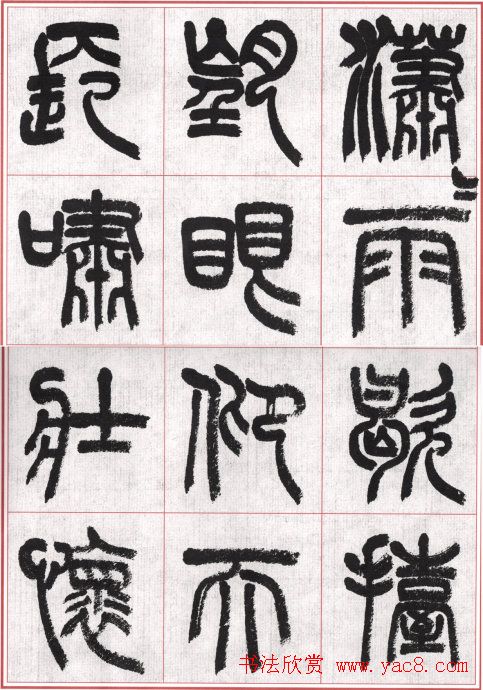 瀟〻雨歇擡
望眼仰天
長嘯壯懷
书法欣赏 www.yac8.com